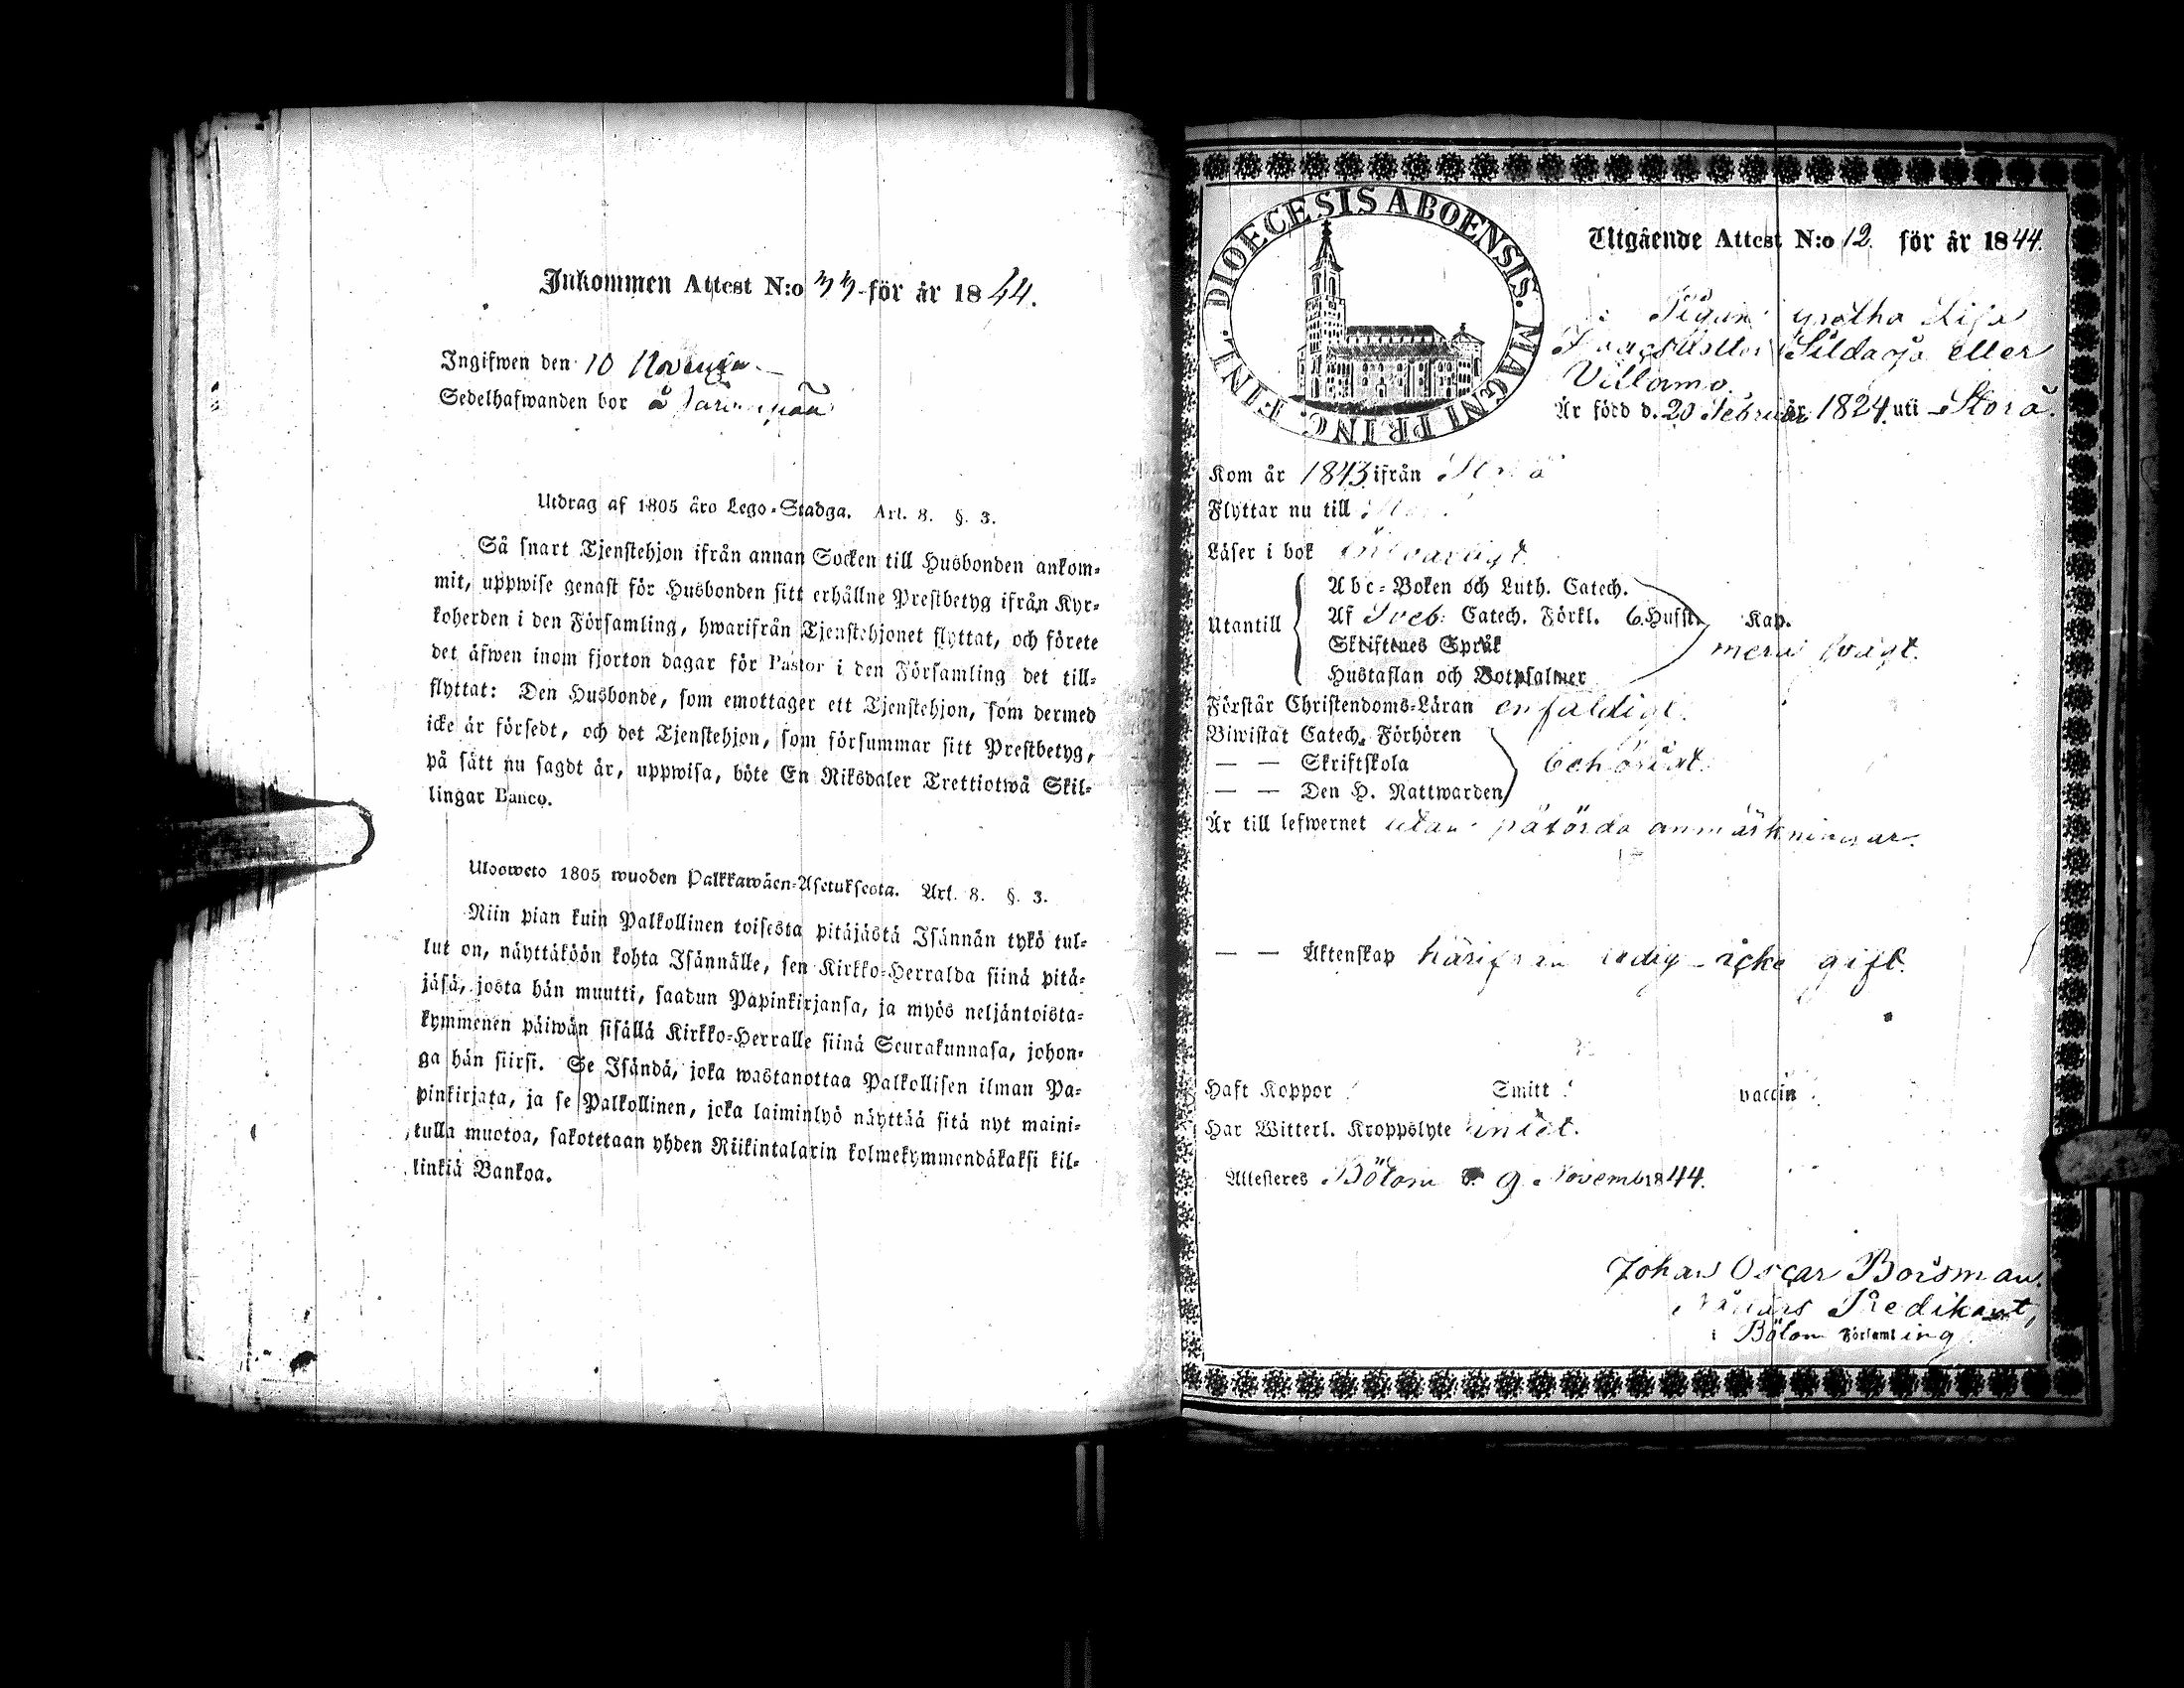 Inkommen Attest N:o 33 för år 1844.
Ingifwen den 10 November
Sedelhafwanden bor å
Utdrag af 1805 åro Lego-Stadga. Art. 8. §. 3.
Så snart Tjenstehjon ifrån annan Socken till Husbonden ankom-
mit, uppwise genast för Husbonden sitt erhållne Prestbetyg ifrån Kyr-
koherden i den Församling, hwarifrån Tjenstehjonet flyttat, och förete
det äfwen inom fjorton dagar för Pastor i den Församling det till-
flyttat: Den Husbonde, som emottager ett Tjenstehjon, som dermed
icke är försedt, och det Tjenstehjon, som försummar sitt Prestbetyg,
på sätt nu sagdt är, uppwisa, böte En Riksdaler Trettiotwå Skil-
lingar Banco.
Uloosweto 1805 wuoden Palkkawäen-Asetuksesta. Art. 8. §. 3.
Niin pian kuin Palkollinen toisesta pitäjästä Isännän tykö tul-
lut on, näyttäköön kohta Isännälle, sen Kirkko-Herralda siinä pitä-
jäsä, josta hän muutti, saadun Papinkirjansa, ja myös neljäntoista-
kymmenen päiwän sisällä Kirkko-Herralle siinä Seurakunnasa, johon-
ga hän siirsi. Se Isändä, joka wastanottaa Palkollisen ilman Pa-
pinkirjata, ja se Palkollinen, joka laiminlyö näyttää sitä nyt maini-
tulla muotoa, sakotetaan yhden Riikintalarin kolmekymmendäkaksi kil-
linkiä Bankoa.
DIOECESIS ABOENSIS. MAGNI PRINC. FINL.
Utgående Attest N:o 12. för år 1844.
Pigan Lisa
Sildarja eller
Villamo.
Är född d. 20 Februari år 1824 uti Storå.
Kom år 1843 ifrån Storå
Flyttar nu till
Läser i bok
Utantill
Abc-Boken och Luth. Catech.
Af Sveb: Catech. Förkl. 6. Hufst. Kap.
Skriftenes Språk
mera svagt.
Hustaflan och Botpsalmer
Förstår Christendoms-Läran enfaldigt.
Biwistat Catech. Förhören
— — Skriftskola behörigt.
— — Den H. Nattwarden
Är till lefwernet utan påförda anmärkningar.
— — Äktenskap härifrån ledig - icke gift.
Haft Koppor Smitt vaccin
Har Witterl. Kroppslyte intet.
Attesteres Bötom d. 9 Novemb 1844.
Johan Oscar Borsman.
Predikant,
i Bötom Församling